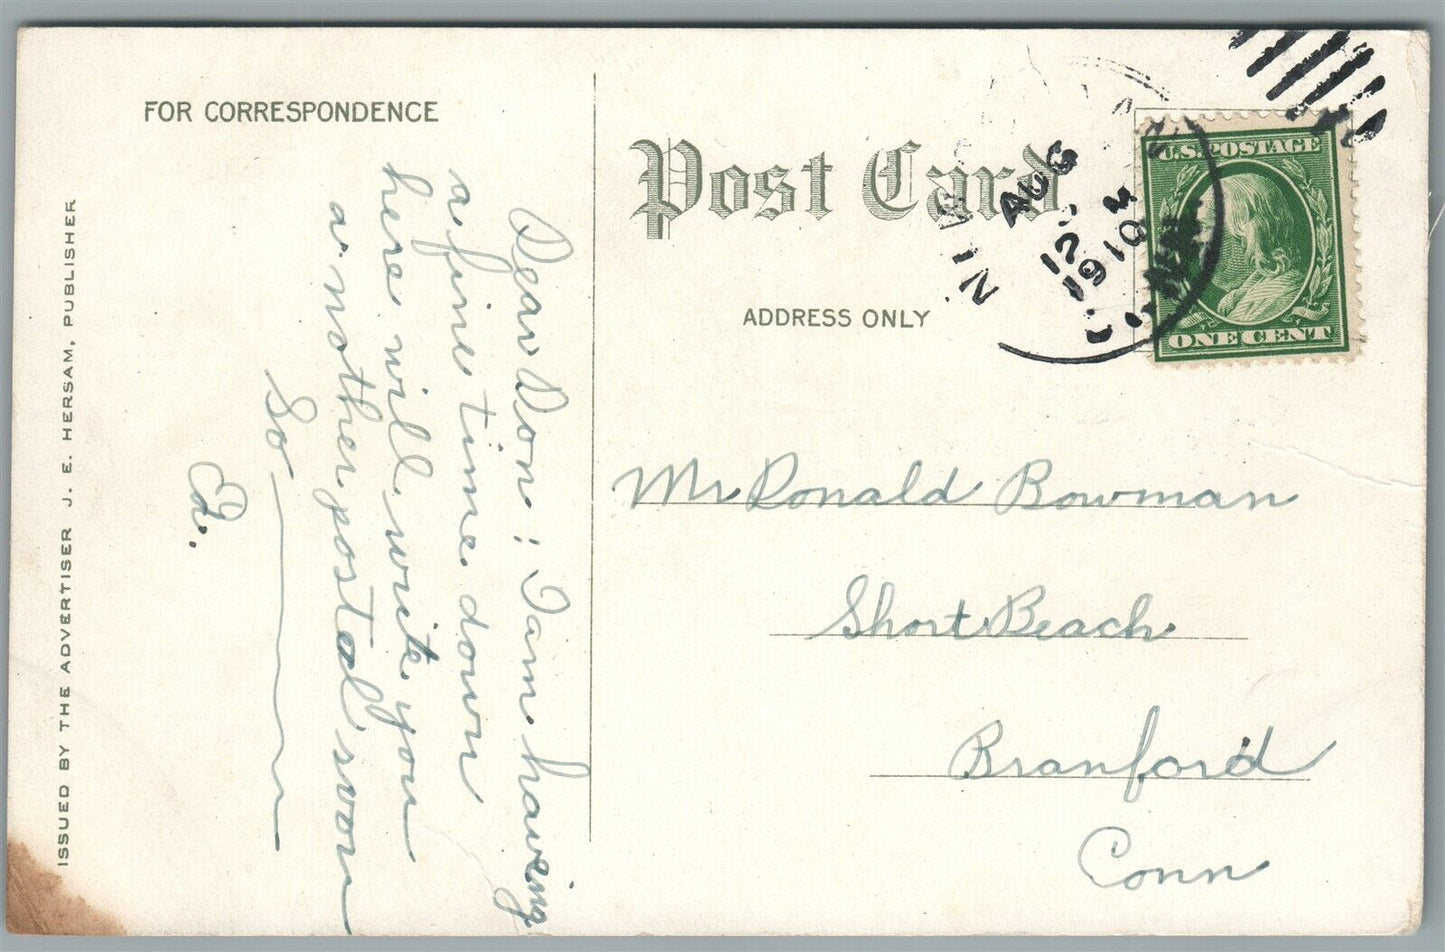 FOR CORRESPONDENCE
Post Card
ADDRESS ONLY
U.S. POSTAGE
ONE CENT
AUG
4
12
1910
Dear Don: I am having
a fine time down
here will write you
a nother postal soon
So
Ed.
Mr Donald Bowman
Short Beach
Branford
Conn
ISSUED BY THE ADVERTISER J. E. HERSAM, PUBLISHER